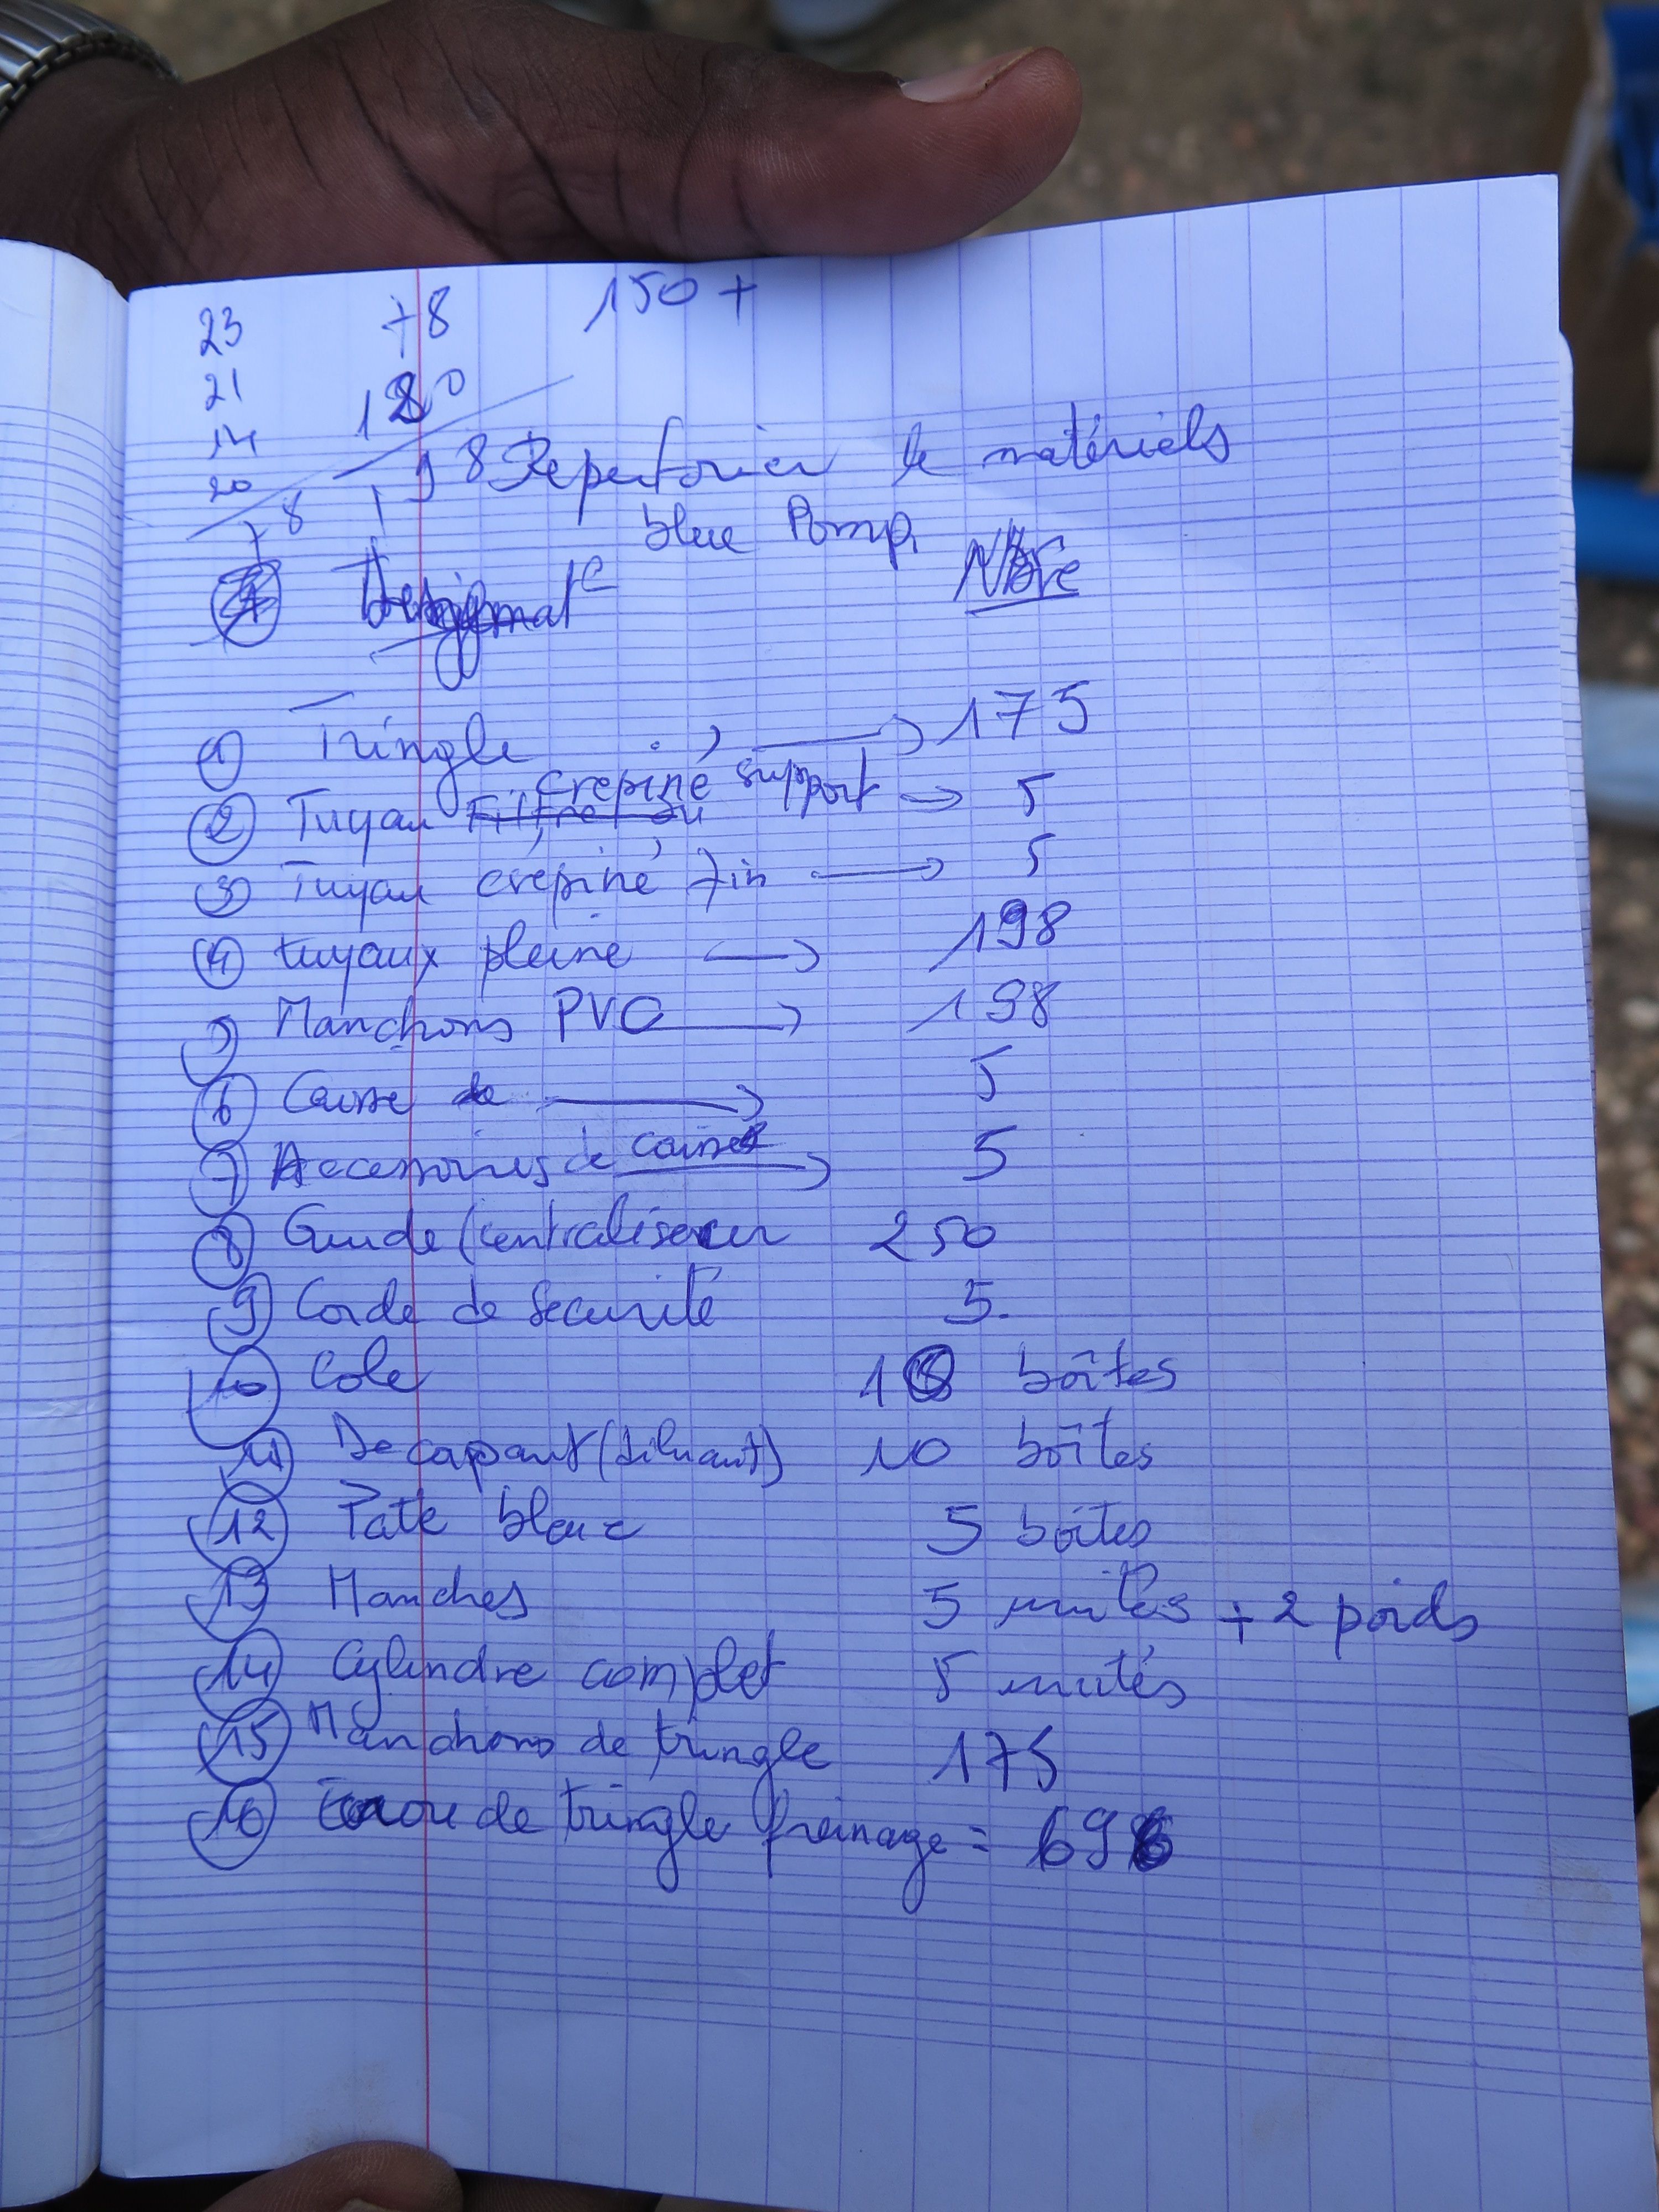 23 +8 150 +
21 120
14
20 198 Repertorier le matériels
78 blue Pomp
Designat° Nbre
1 Tringle → 175
2 Tuyau Filtre ou crepiné support → 5
3 Tuyau crépiné fin → 5
4 tuyaux pleine → 198
5 Manchons PVC → 198
6 Caisse de → 5
7 Accessoires de caisse → 5
8 Guide (centraliseur 250
9 Corde de securité 5.
10 Cole boîtes
11 Decapant (diluant) 10 boîtes
12 Pate bleue 5 boîtes
13 Manches 5 unités + 2 poids
14 Cylindre complet 5 unités
15 Manchons de tringle 175
16 Ecrou de tringle freinage = 696